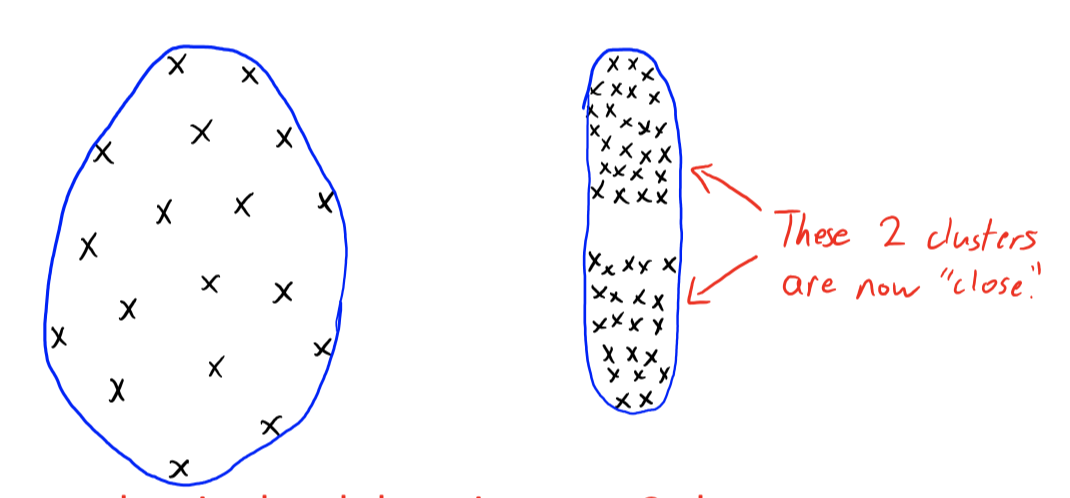 These 2 clusters
are now "close."